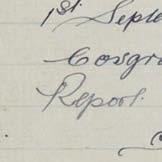 1st Septe
Cosgr
Report.